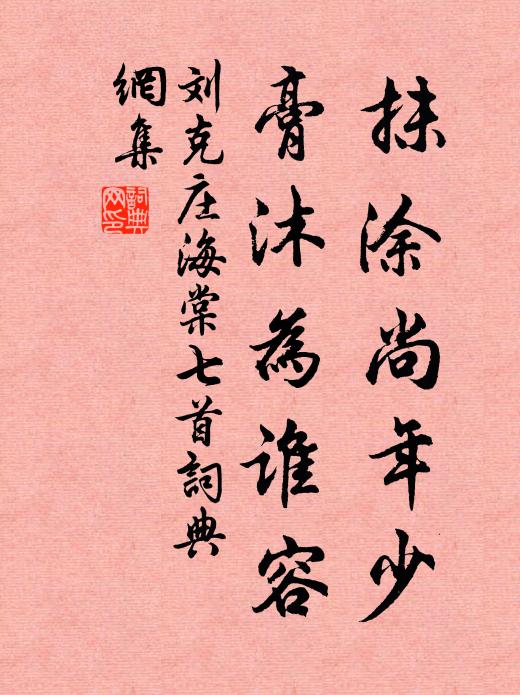 抹涂尚年少
膏沐為誰容
刘克庄海棠七首詞典
網集
詞典
网印